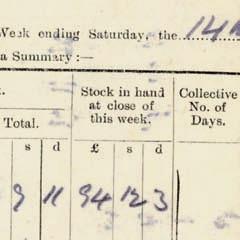 Week ending Saturday, the 14th
a Summary:—
Stock in hand Collective
at close of No. of
Total. this week. Days.
s d £ s d
9 11 94 12 3